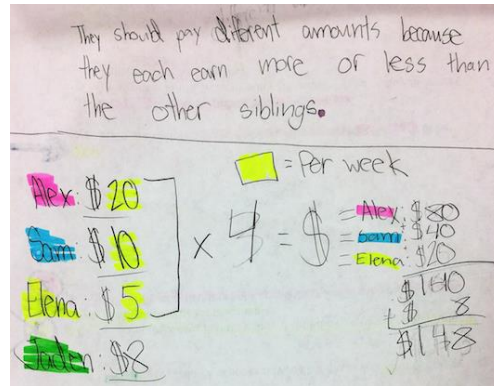 They should pay different amounts because
they each earn more or less than
the other siblings.
= Per week
Alex: $20
Sam: $10
Elena: $5
Jaden: $8
x 4 = $
= Alex: $80
= Sam: $40
= Elena: $20
$140
+ $ 8
$148